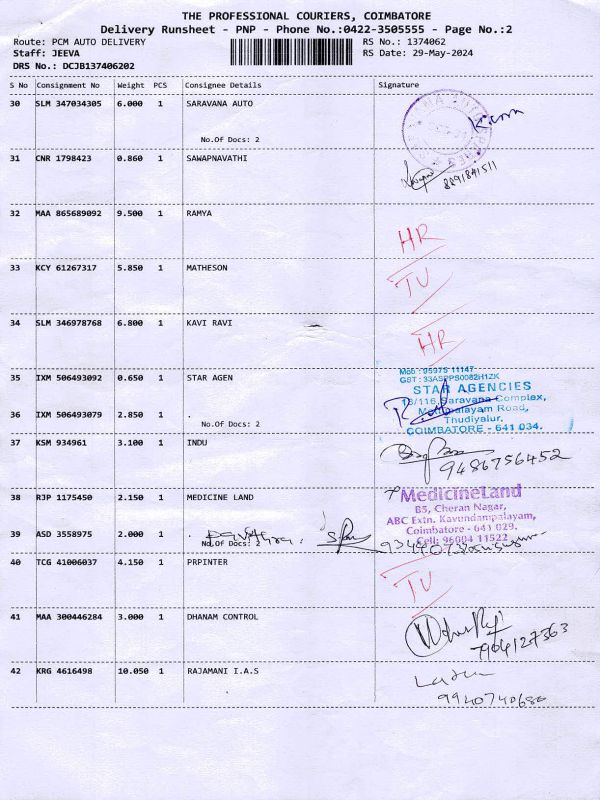 THE PROFESSIONAL COURIERS, COIMBATORE
Delivery Runsheet - PNP - Phone No.:0422-3505555 - Page No.:2
Route: PCM AUTO DELIVERY RS No.: 1374062
Staff: JEEVA RS Date: 29-May-2024
DRS No.: DCJB137406202
S No Consignment No Weight PCS Consignee Details Signature
30 SLM 347034305 6.000 1 SARAVANA AUTO
No.Of Docs: 2
31 CNR 1798423 0.860 1 SAWAPNAVATHI
8891841511
32 MAA 865689092 9.500 1 RAMYA
HR
33 KCY 61267317 5.850 1 MATHESON
TV
34 SLM 346978768 6.800 1 KAVI RAVI
HR
Mob : 95975 11147
GST : 33ASPPS0082H1ZK
35 IXM 506493092 0.650 1 STAR AGEN
STAR AGENCIES
Saravana Complex,
36 IXM 506493079 2.850 1 .
No.Of Docs: 2
Road,
Thudiyalur,
COIMBATORE - 641 034.
37 KSM 934961 3.100 1 INDU
9486756452
38 RJP 1175450 2.150 1 MEDICINE LAND
MedicineLand
B5, Cheran Nagar,
ABC Extn. Kavundampalayam,
Coimbatore - 641 029.
Cell: 96004 11522
39 ASD 3558975 2.000 1 .
No.Of Docs: 2
40 TCG 41006037 4.150 1 PRPINTER
TV
41 MAA 300446284 3.000 1 DHANAM CONTROL
7904127363
42 KRG 4616498 10.050 1 RAJAMANI I.A.S
9940740686